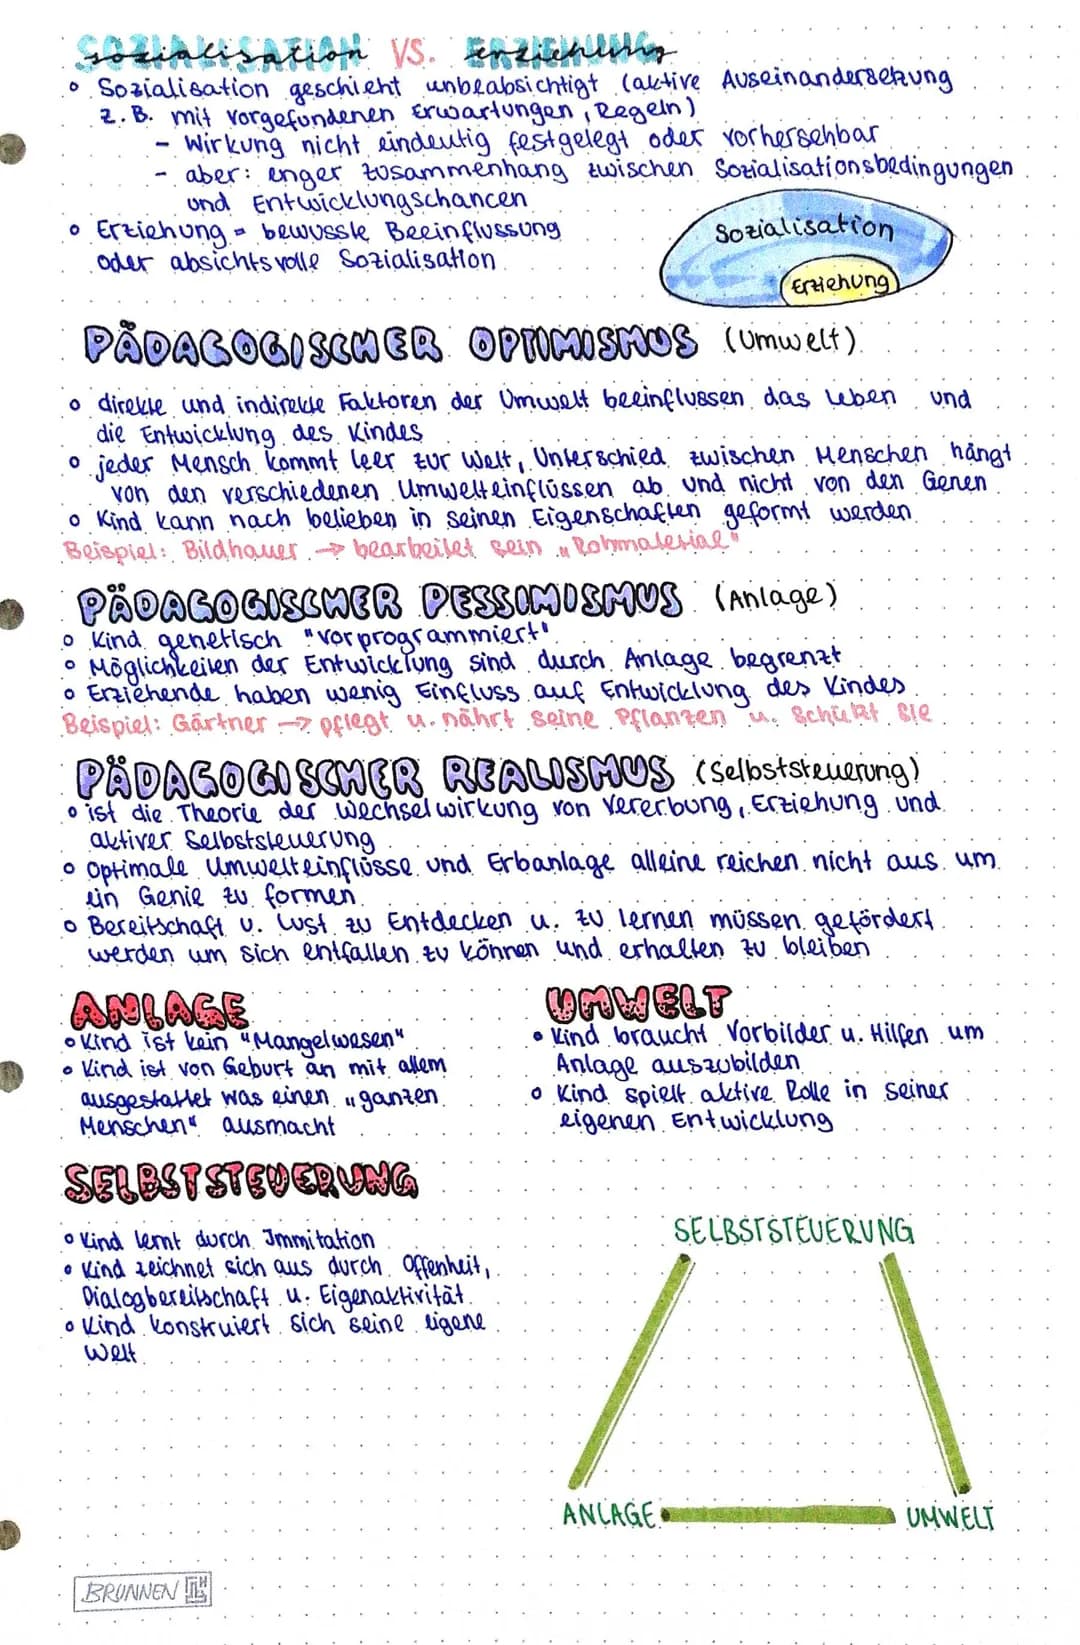 SOZIALISATION VS. ERZIEHUNG
sozialisation erziehung
Sozialisation geschieht unbeabsichtigt (aktive Auseinandersetzung
z.B. mit vorgefundenen Erwartungen, Regeln)
- Wirkung nicht eindeutig festgelegt oder vorhersehbar
- aber: enger Zusammenhang zwischen Sozialisationsbedingungen
und Entwicklungschancen
Erziehung = bewusste Beeinflussung
oder absichtsvolle Sozialisation
Sozialisation
Erziehung
PÄDAGOGISCHER OPTIMISMUS (Umwelt)
direkte und indirekte Faktoren der Umwelt beeinflussen das Leben und
die Entwicklung des Kindes
jeder Mensch kommt leer zur Welt, Unterschied zwischen Menschen hängt
von den verschiedenen Umwelteinflüssen ab und nicht von den Genen
Kind kann nach belieben in seinen Eigenschaften geformt werden
Beispiel: Bildhauer → bearbeitet sein „Rohmaterial"
PÄDAGOGISCHER PESSIMISMUS (Anlage)
Kind genetisch "vorprogrammiert"
Möglichkeiten der Entwicklung sind durch Anlage begrenzt
Erziehende haben wenig Einfluss auf Entwicklung des Kindes
Beispiel: Gärtner → pflegt u. nährt seine Pflanzen u. schützt sie
PÄDAGOGISCHER REALISMUS (Selbststeuerung)
ist die Theorie der Wechselwirkung von Vererbung, Erziehung und
aktiver Selbststeuerung
Optimale Umwelteinflüsse und Erbanlage alleine reichen nicht aus um
ein Genie zu formen
Bereitschaft u. Lust zu Entdecken u. zu lernen müssen gefördert
werden um sich entfalten zu können und erhalten zu bleiben
ANLAGE
Kind ist kein "Mangelwesen"
Kind ist von Geburt an mit allem
ausgestattet was einen „ganzen
Menschen" ausmacht
UMWELT
Kind braucht Vorbilder u. Hilfen um
Anlage auszubilden
Kind spielt aktive Rolle in seiner
eigenen Entwicklung
SELBSTSTEUERUNG
Kind lernt durch Immitation
Kind zeichnet sich aus durch Offenheit,
Dialogbereitschaft u. Eigenaktivität
Kind konstruiert sich seine eigene
Welt
SELBSTSTEUERUNG
ANLAGE UMWELT
BRUNNEN